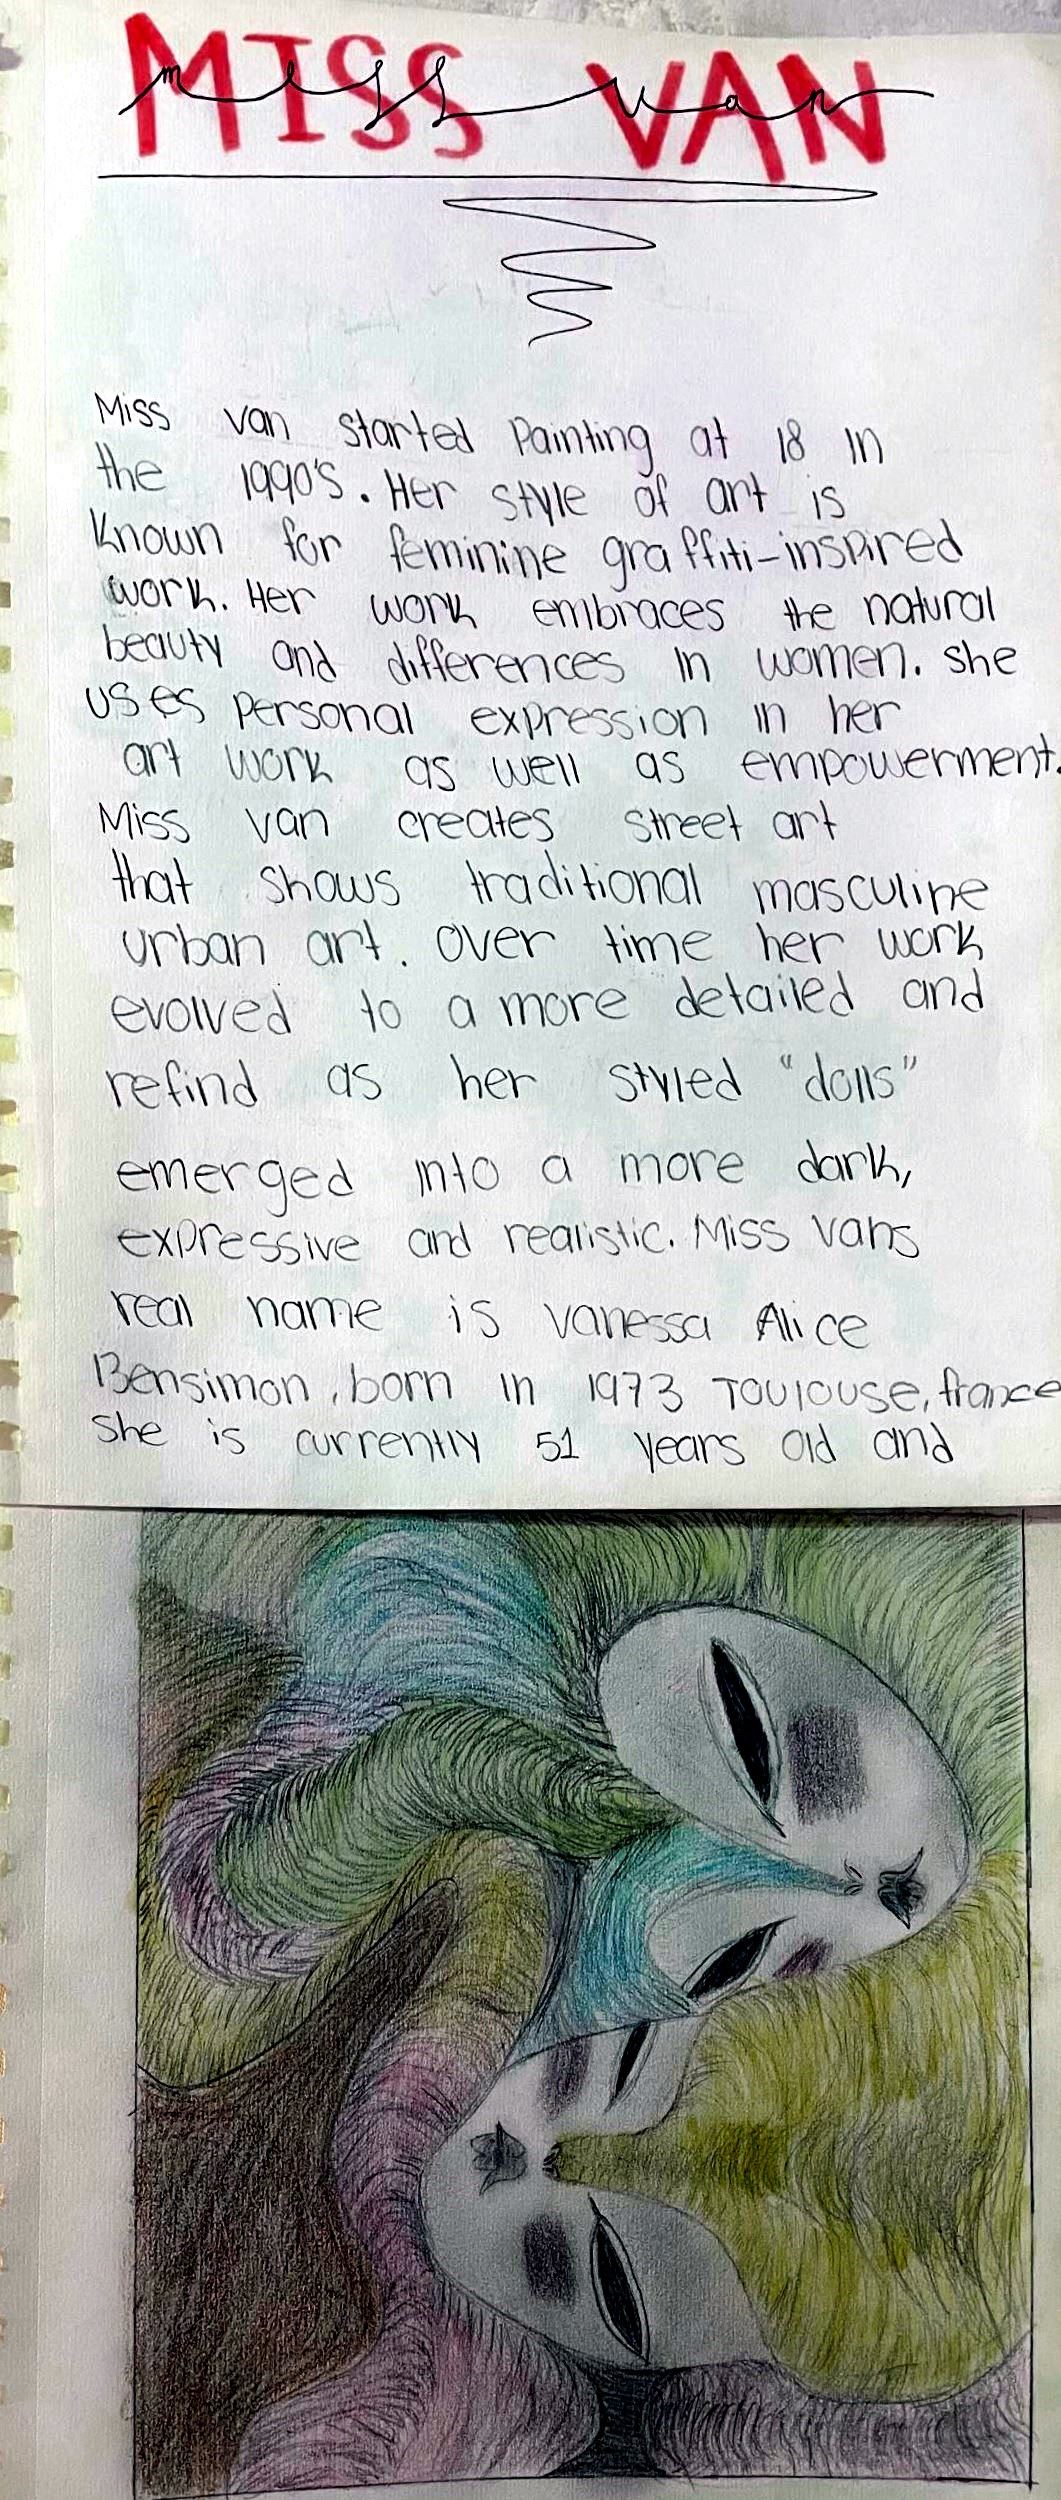 MISS VAN
miss van
Miss van started Painting at 18 in
the 1990's. Her style of art is
known for feminine graffiti-inspired
work. Her work embraces the natural
beauty and differences in women. she
uses personal expression in her
art work as well as empowerment.
Miss van creates street art
that shows traditional masculine
urban art. over time her work
evolved to a more detailed and
refind as her styled "dolls"
emerged into a more dark,
expressive and realistic. Miss vans
real name is vanessa Alice
Bensimon, born in 1973 Toulouse, france
she is currently 51 years old and